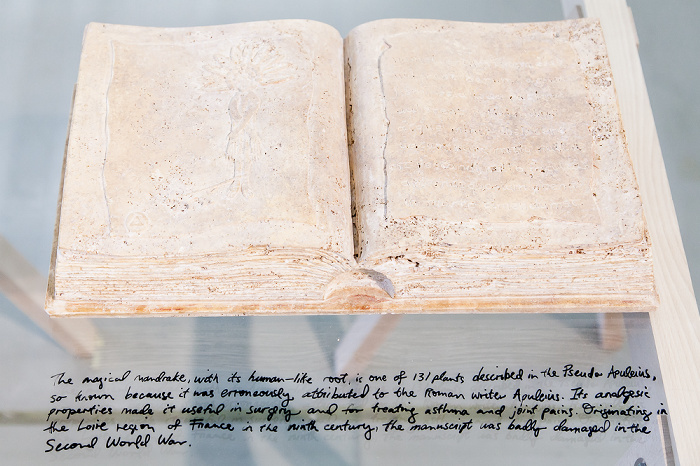 The magical mandrake, with its human-like root, is one of 131 plants described in the Pseudo Apuleius,
so known because it was erroneously attributed to the Roman writer Apuleius. Its analgesic
properties made it useful in surgery and for treating asthma and joint pains. Originating in
the Loire region of France in the ninth century, the manuscript was badly damaged in the
Second World War.